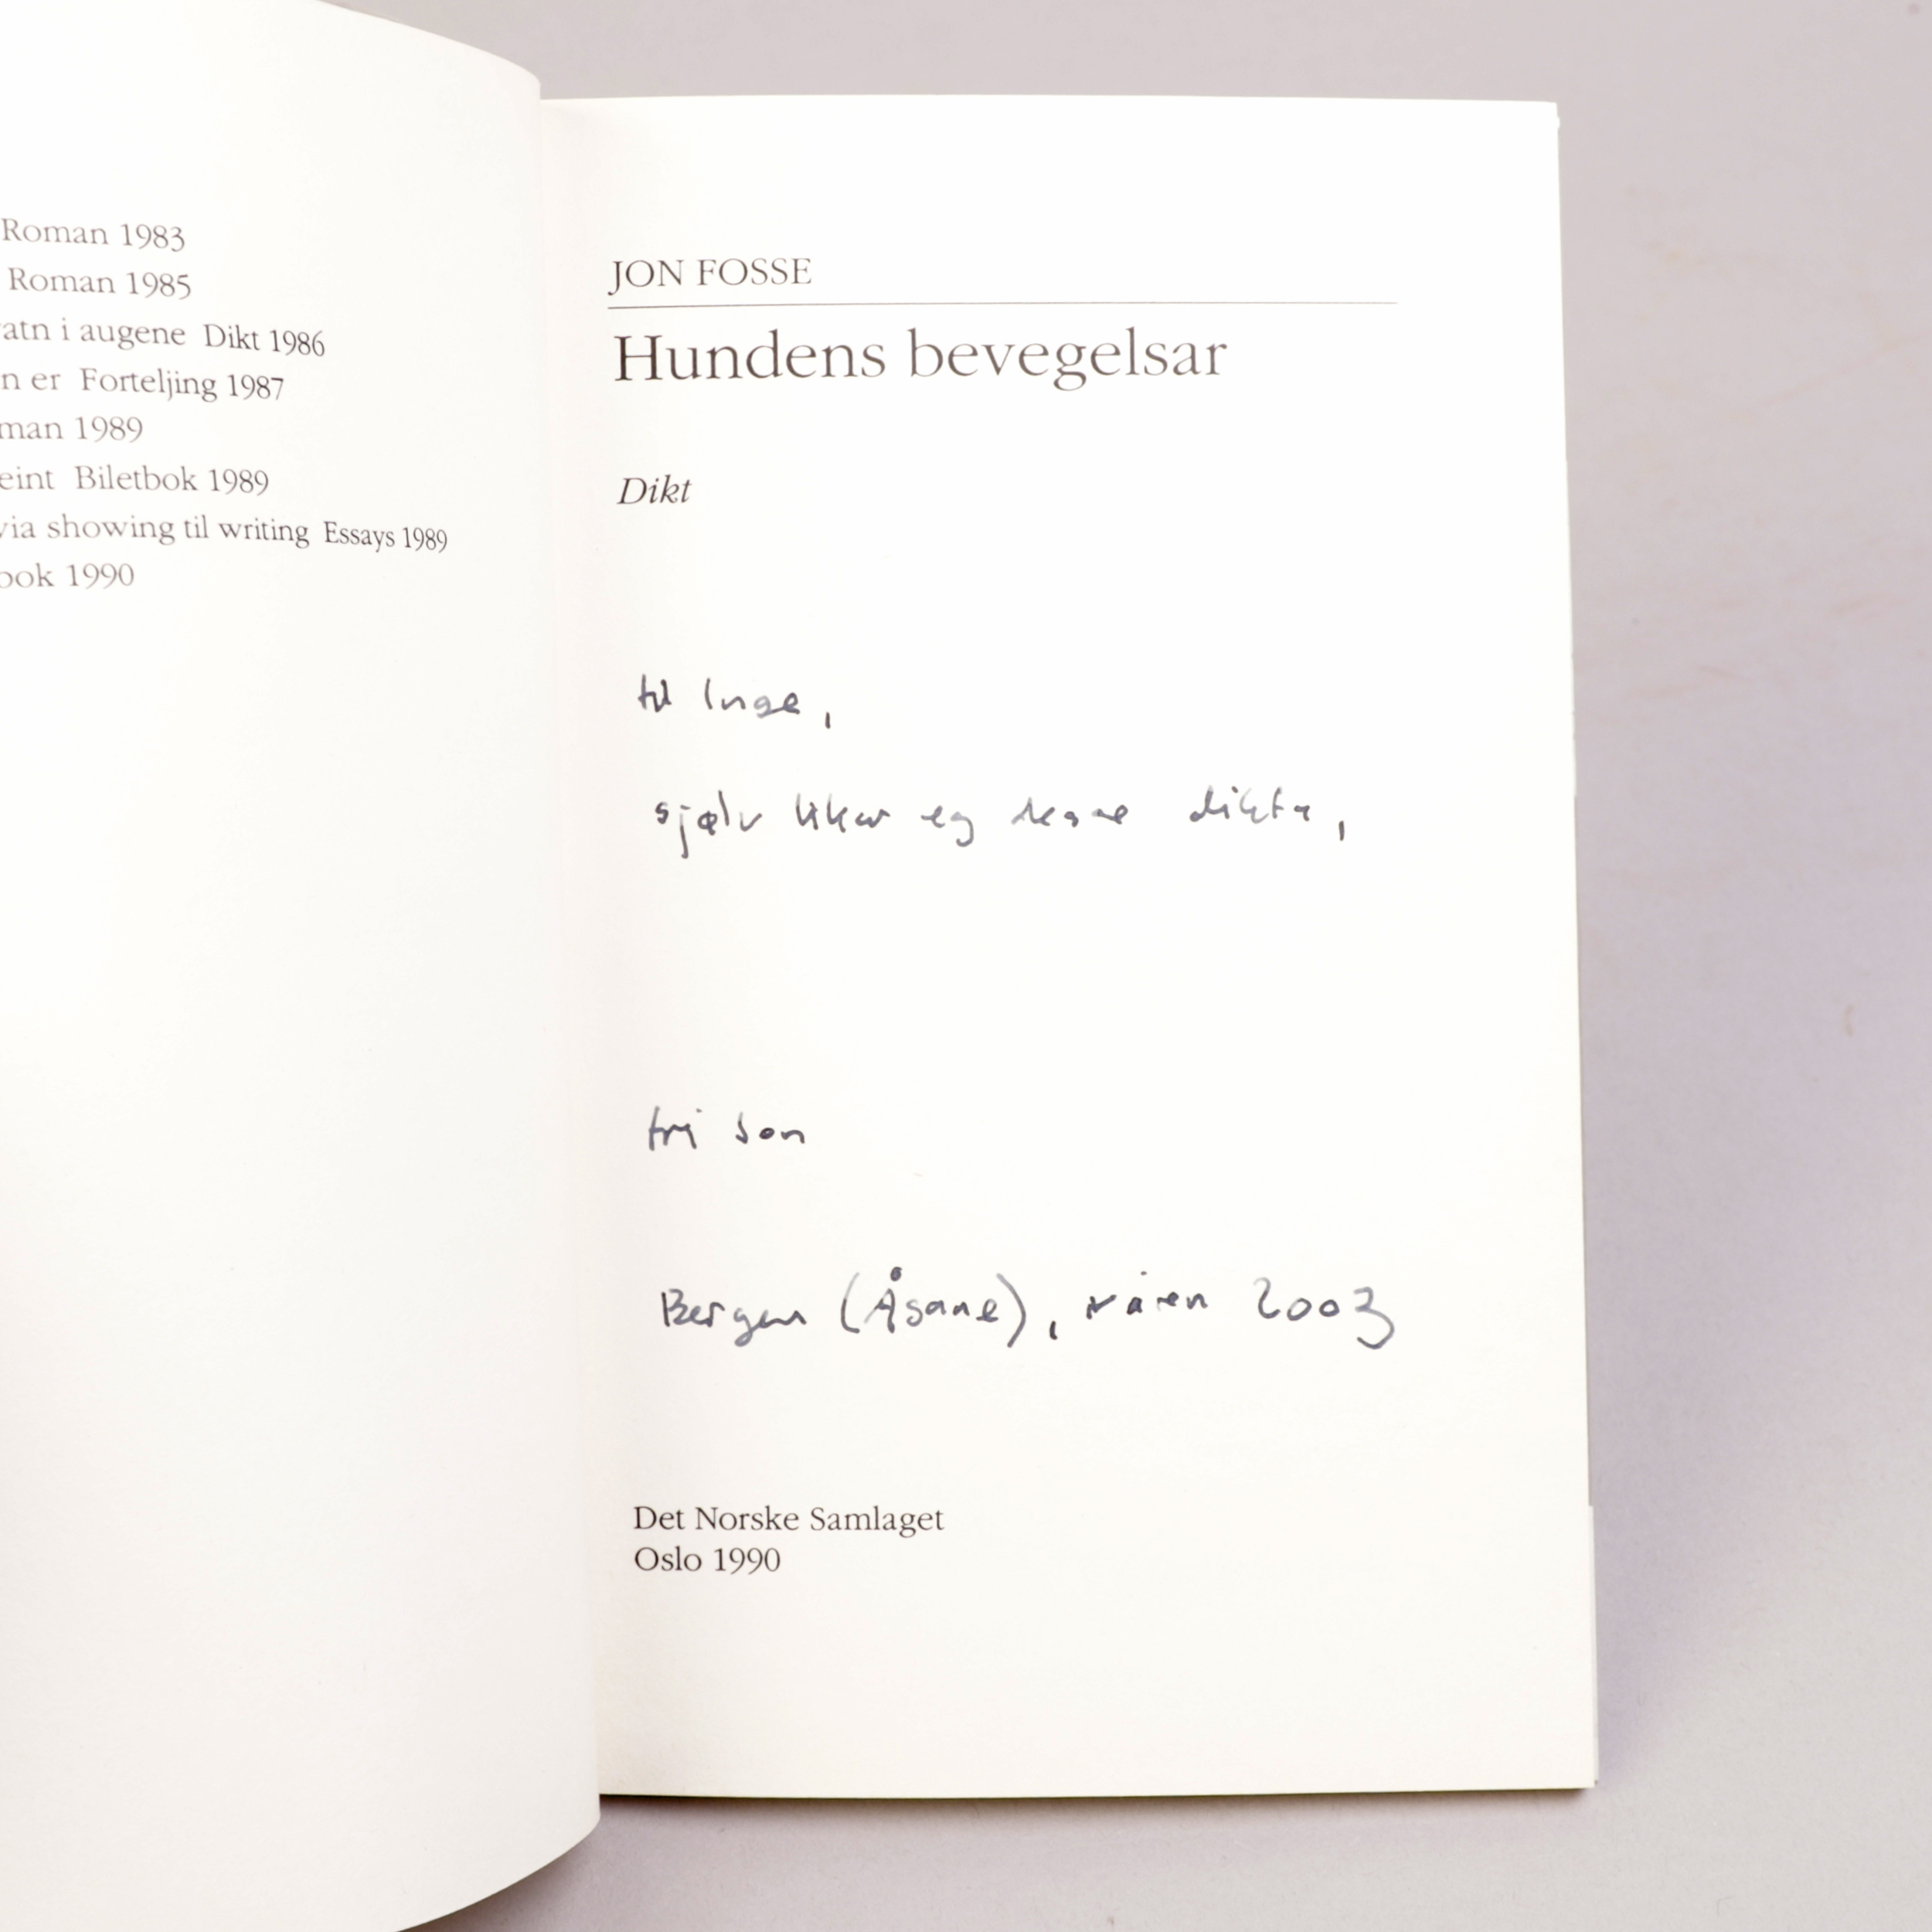 Roman 1983
Roman 1985
atn i augene Dikt 1986
n er Forteljing 1987
man 1989
eint Biletbok 1989
via showing til writing Essays 1989
ook 1990
JON FOSSE
Hundens bevegelsar
Dikt
til Inge,
sjølv likar eg desse dikta,
frå Jon
Bergen (Åsane), våren 2003
Det Norske Samlaget
Oslo 1990